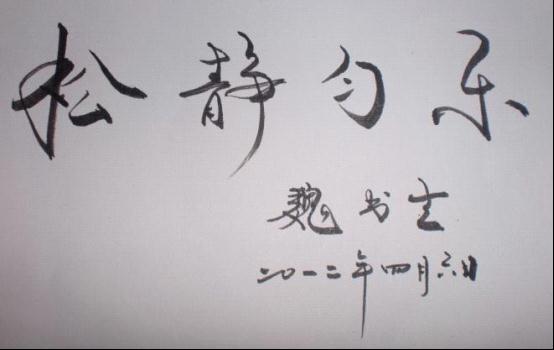 松静匀乐
魏书生
二〇一二年四月六日